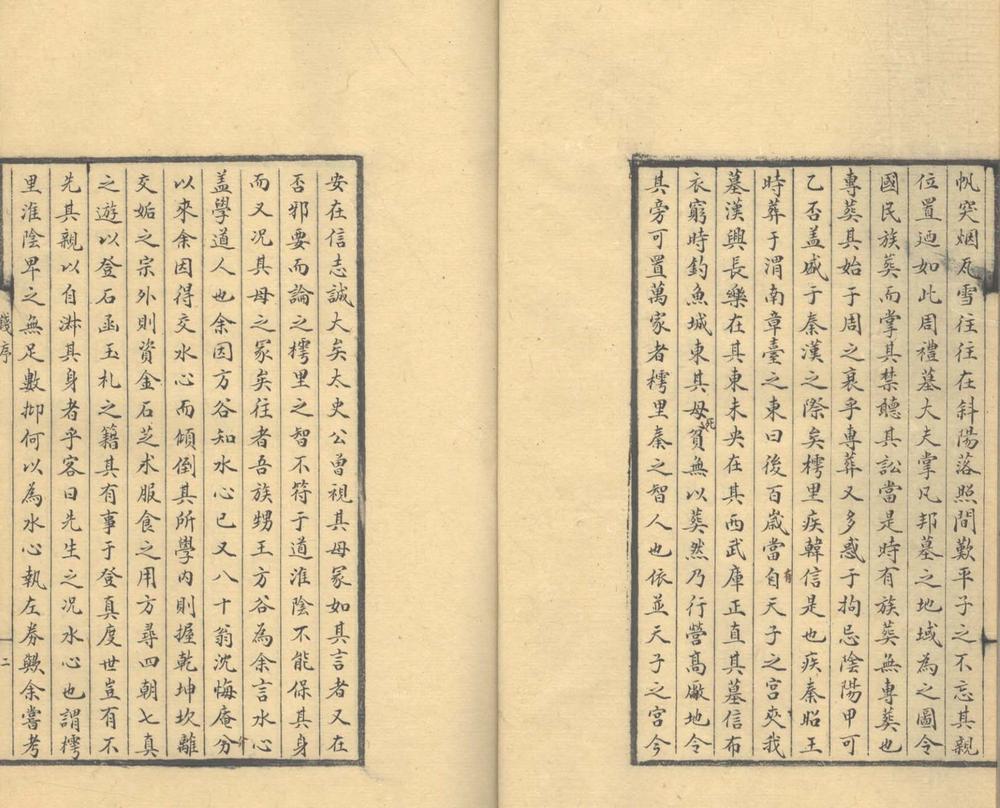 帆突烟瓦雪往往在斜陽落照間歎平子之不忘其親
位置迺如此周禮墓大夫掌凡邦墓之地域為之圖令
國民族葬而掌其禁聽其訟當是時有族葬無專葬也
專葬其始于周之衰乎專葬又多惑于拘忌陰陽甲可
乙否盖感于秦漢之際矣樗里疾韓信是也疾秦昭王
時葬于渭南章臺之東曰後百歲當自天子之宮夾我
有
墓漢興長樂在其東未央在其西武庫正直其墓信布
衣窮時釣魚城東其母貧無以葬然乃行營高厰地令
死
其旁可置萬家者樗里秦之智人也依並天子之宮今
安在信志誠大矣太史公曾視其母冢如其言者又在
否邪要而論之樗里之智不符于道淮陰不能保其身
而又况其母之冢矣往者吾族甥王方谷為余言水心
盖學道人也余因方谷知水心已又八十翁沈悔庵分
以來余因得交水心而傾倒其所學內則握乾坤坎離
交姤之宗外則資金石芝朮服食之用方尋四朝七真
之遊以登石函玉札之籍其有事于登真度世豈有不
先其親以自淋其身者乎客曰先生之况水心也謂樗
里淮陰卑之無足數抑何以為水心執左券歟余嘗考
錢序
二